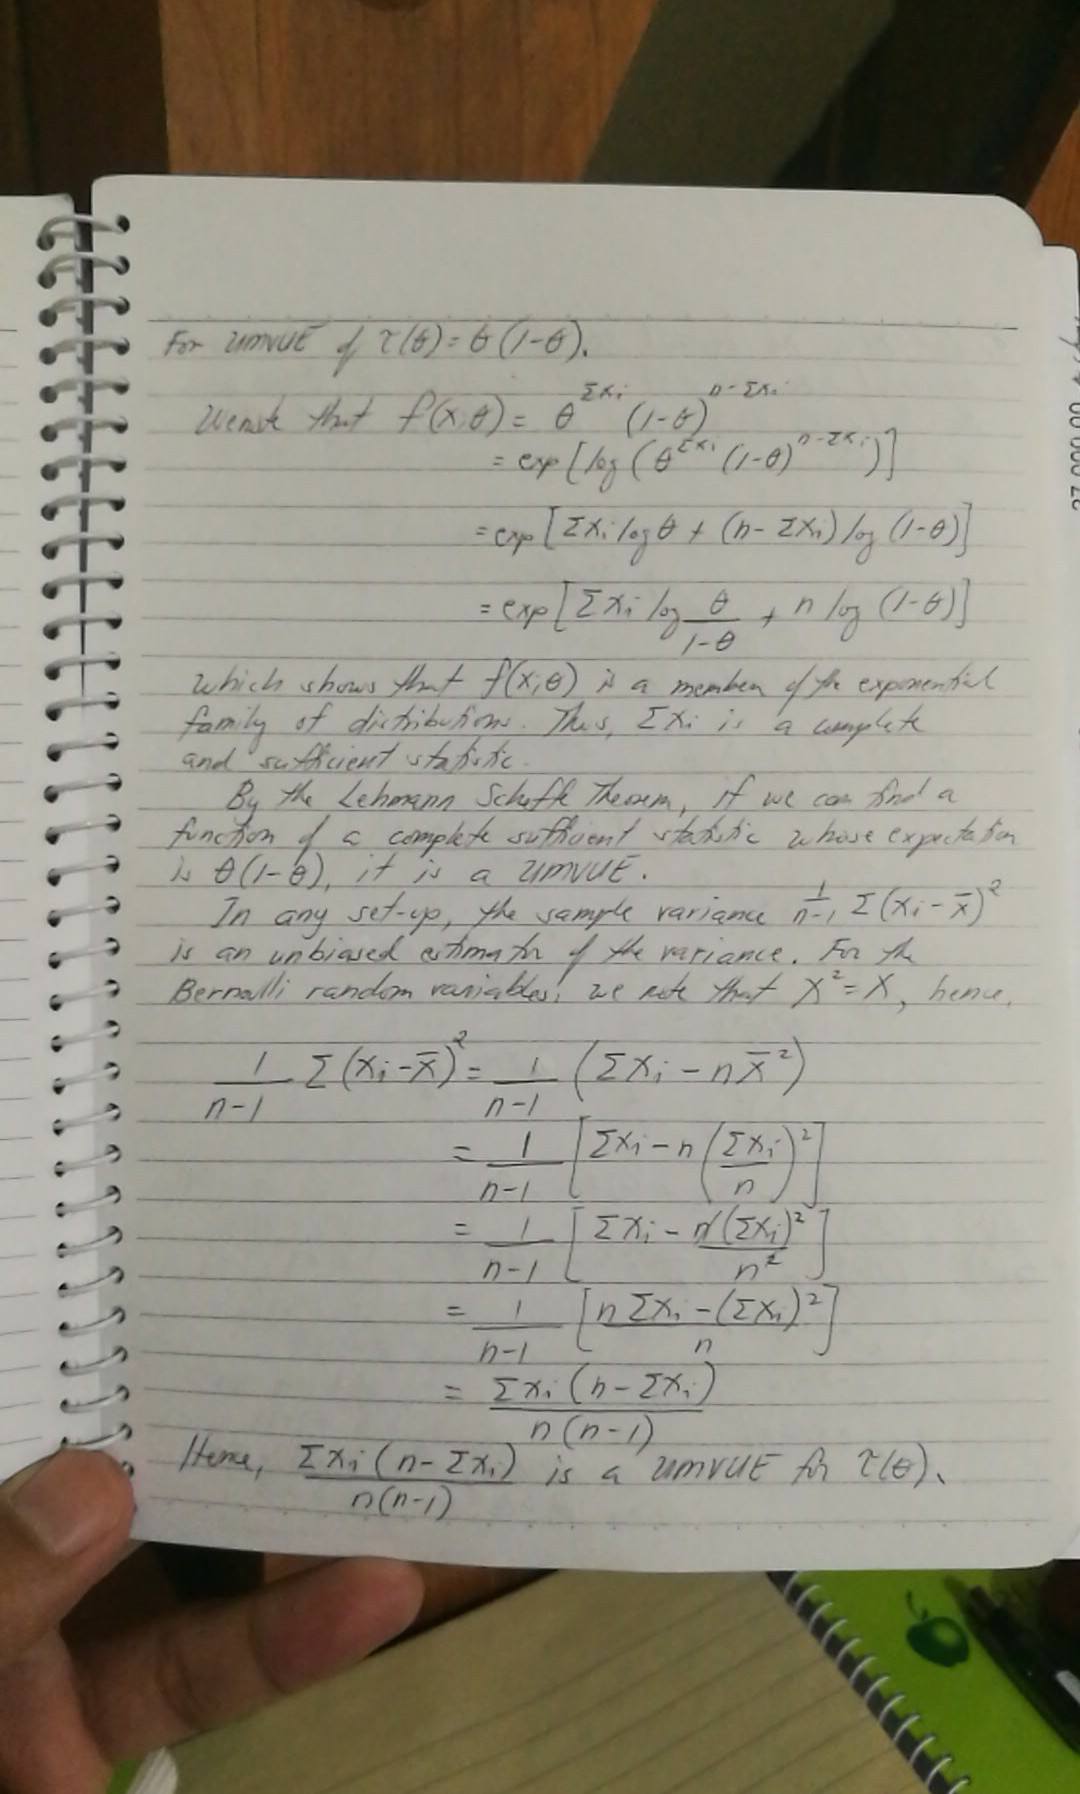 For UMVUE of τ(θ) = θ(1-θ).
We note that f(x;θ) = θ^{Σxi} (1-θ)^{n-Σxi}
= exp[log(θ^{Σxi} (1-θ)^{n-Σxi})]
= exp[Σxi log θ + (n-Σxi) log (1-θ)]
= exp[Σxi log θ/(1-θ) + n log (1-θ)]
which shows that f(x;θ) is a member of the exponential
family of distributions. Thus, Σxi is a complete
and sufficient statistic.
By the Lehmann Scheffe Theorem, if we can find a
function of a complete sufficient statistic whose expectation
is θ(1-θ), it is a UMVUE.
In any set-up, the sample variance 1/(n-1) Σ(xi-x̄)²
is an unbiased estimator of the variance. For the
Bernoulli random variables, we note that X²=X, hence,
1/(n-1) Σ(xi-x̄)² = 1/(n-1) (Σxi - nx̄²)
= 1/(n-1) [Σxi - n(Σxi/n)²]
= 1/(n-1) [Σxi - n(Σxi)²/n²]
= 1/(n-1) [(nΣxi - (Σxi)²)/n]
= Σxi(n-Σxi)/(n(n-1))
Hence, Σxi(n-Σxi)/(n(n-1)) is a UMVUE for τ(θ).